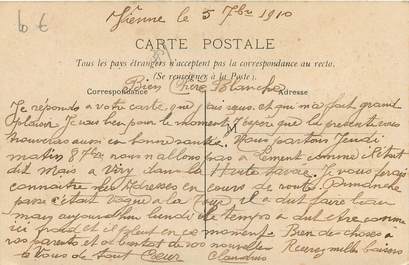 6 €
Vienne le 5 7bre 1910
CARTE POSTALE
Tous les pays étrangers n'acceptent pas la correspondance au recto.
(Se renseigner à la Poste).
Correspondance
Adresse
Bien Chère Blanche
Je réponds a votre carte que j'ai reçue et qui m'a fait grand
plaisir Je vais bien pour le moment J'espère que la présente vous
trouveras aussi en bonne santée. Nous partons Jeudi
matin 8 7bre nous n'allons pas a comme c'était
dit mais a Viry dans la Haute Savoie Je vous ferais
connaitre mes adresses en cours de route. Dimanche
passé c'était vogue a la il a dut faire beau
mais aujourd'hui lundi le temps a dut etre comme
ici froid et il pleut en ce moment. Bien des choses a
vos parents et de
Recevez milles baisers
Vous de tout Coeur Claudius